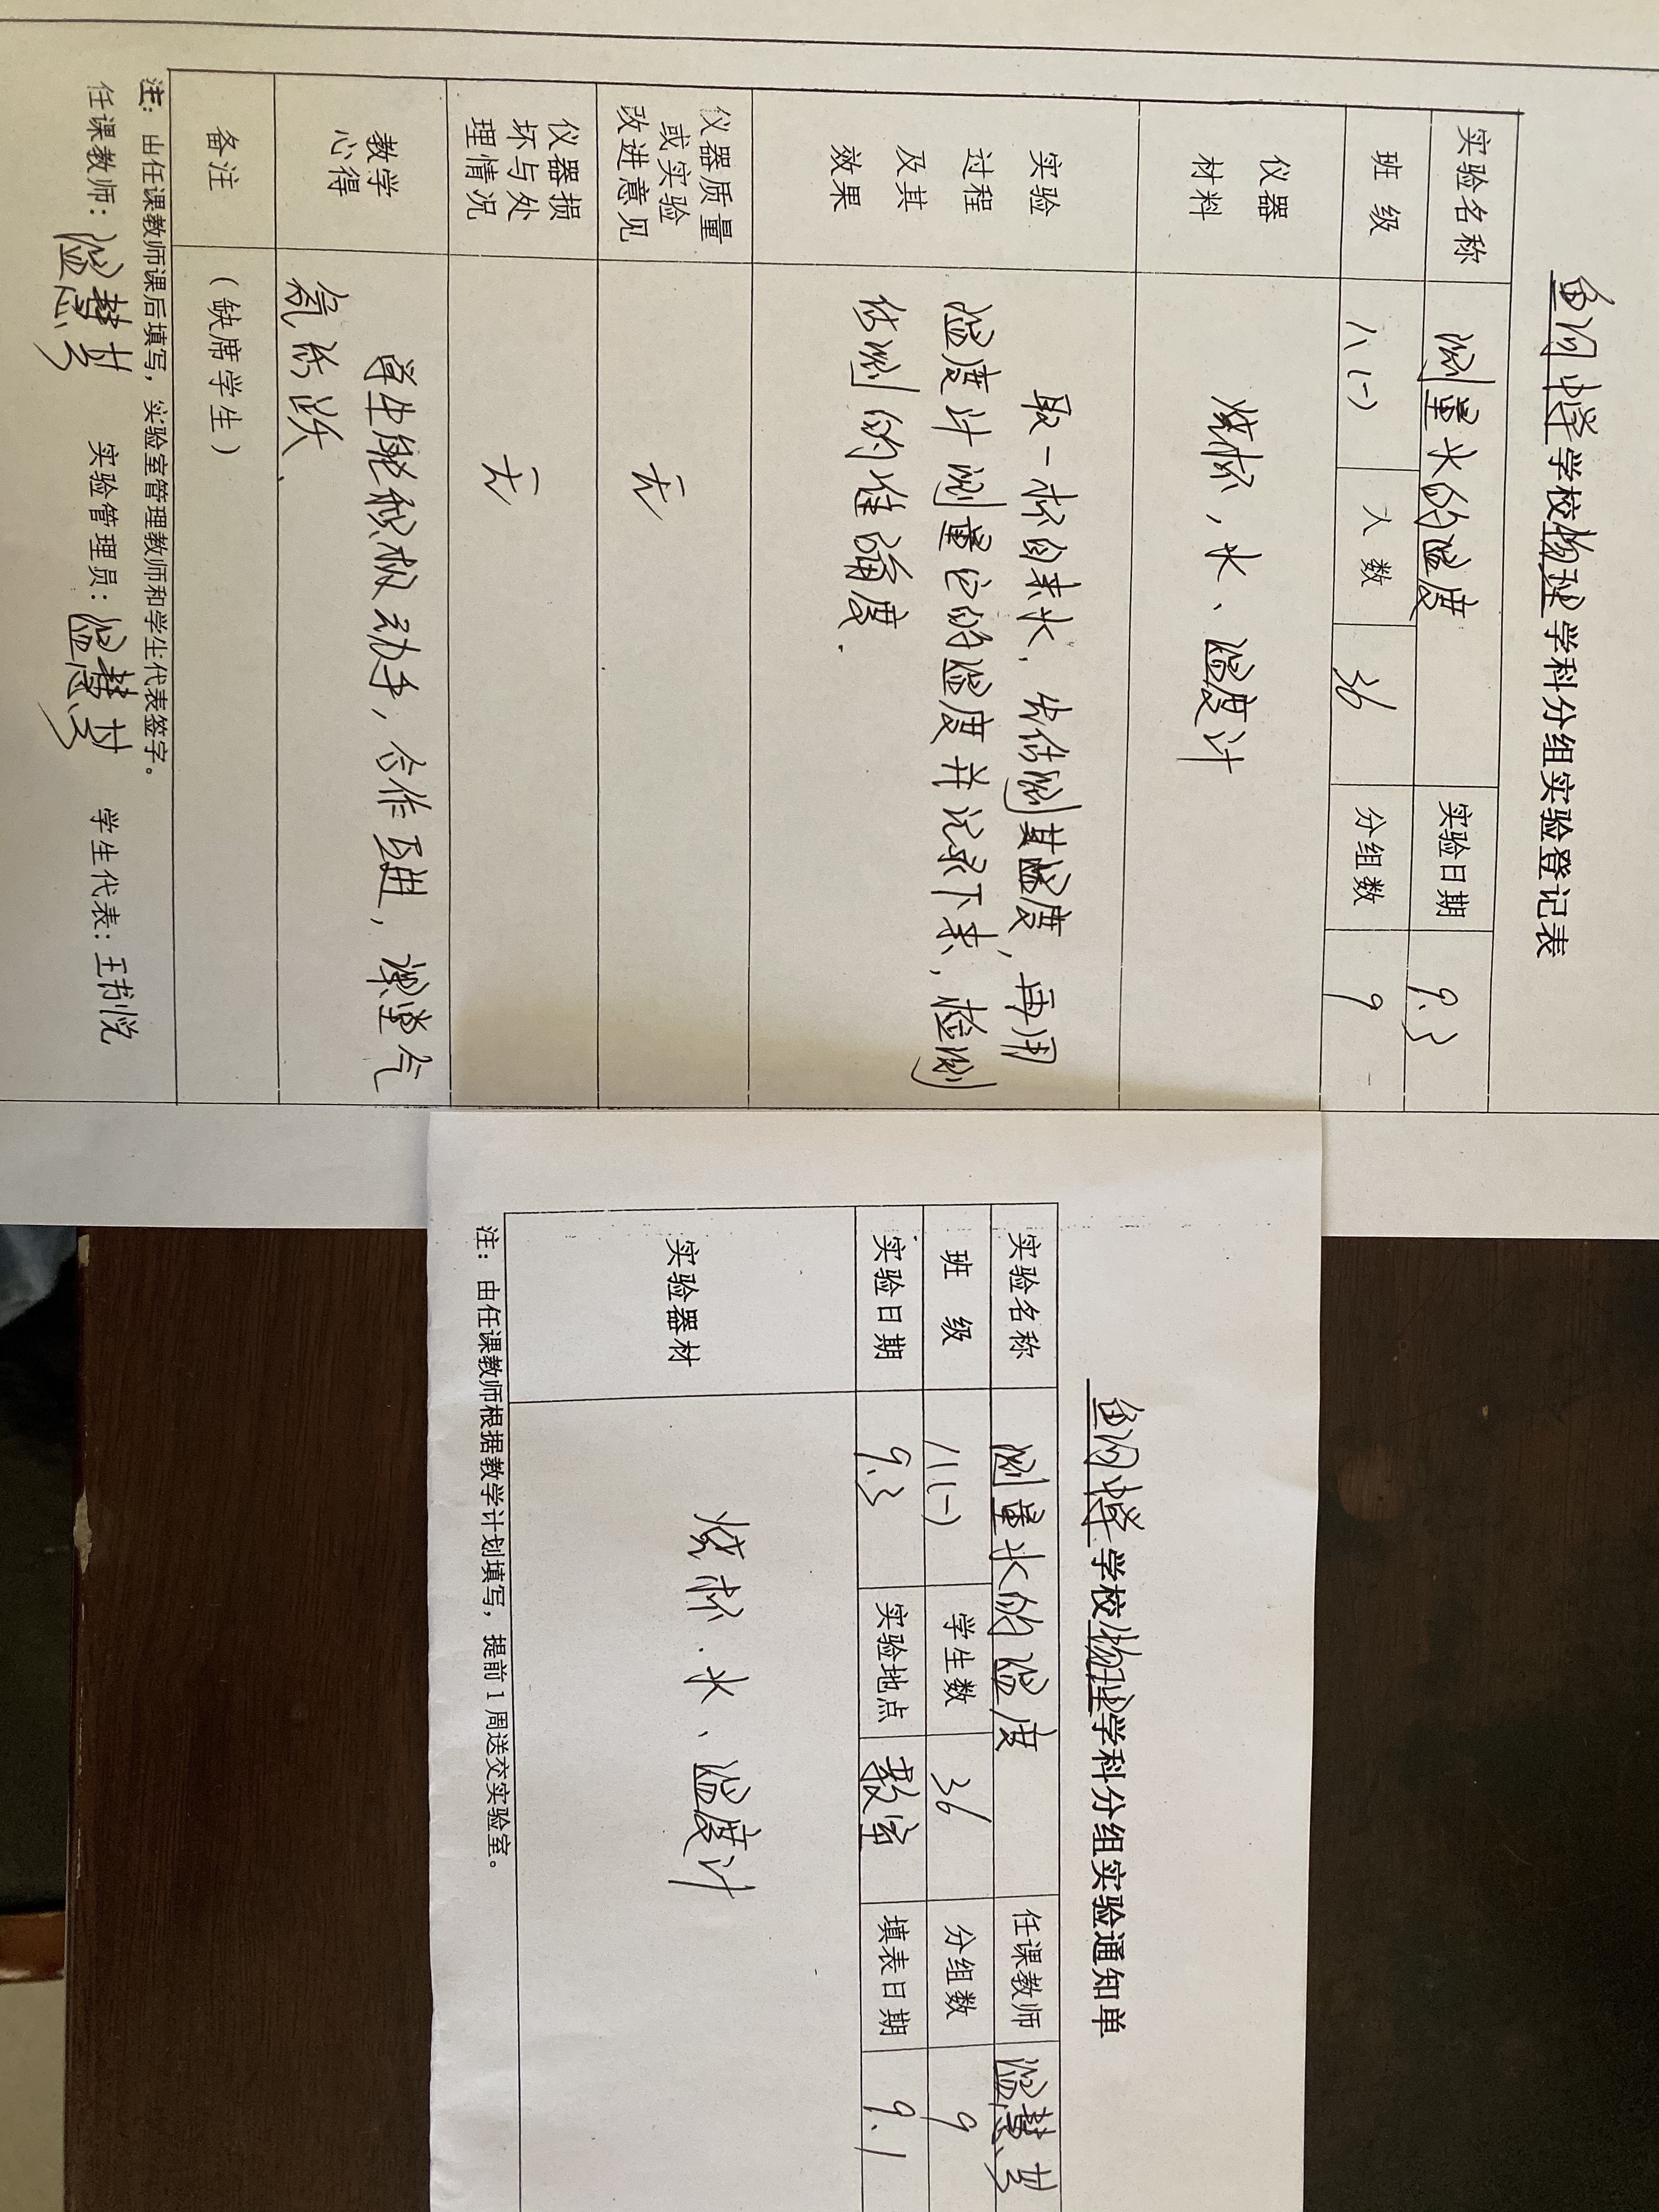 鱼河中学学校物理学科分组实验登记表
实验名称 测量水的温度 实验日期 9.3
班 级 八(一) 人 数 36 分组数 9
仪器
材料
烧杯，水、温度计
实验
过程
及其
效果
取一杯自来水，先估测其温度，再用
温度计测量它的温度并记录下来，检测
估测的准确度.
仪器质量
或实验
改进意见
无
仪器损
坏与处
理情况
无
教学
心得
学生能积极动手，合作互进，课堂气
氛活跃、
备注 （缺席学生）
注：由任课教师课后填写，实验室管理教师和学生代表签字。
任课教师： 实验管理员： 学生代表：王书悦
鱼河中学学校物理学科分组实验通知单
实验名称 测量水的温度 任课教师
班 级 八(一) 学生数 36 分组数 9
实验日期 9.3 实验地点 教室 填表日期 9.1
实验器材 烧杯.水、温度计
注：由任课教师根据教学计划填写，提前1周送交实验室。